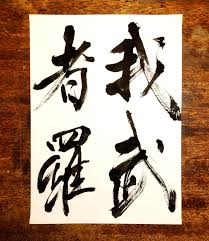 我武
者羅